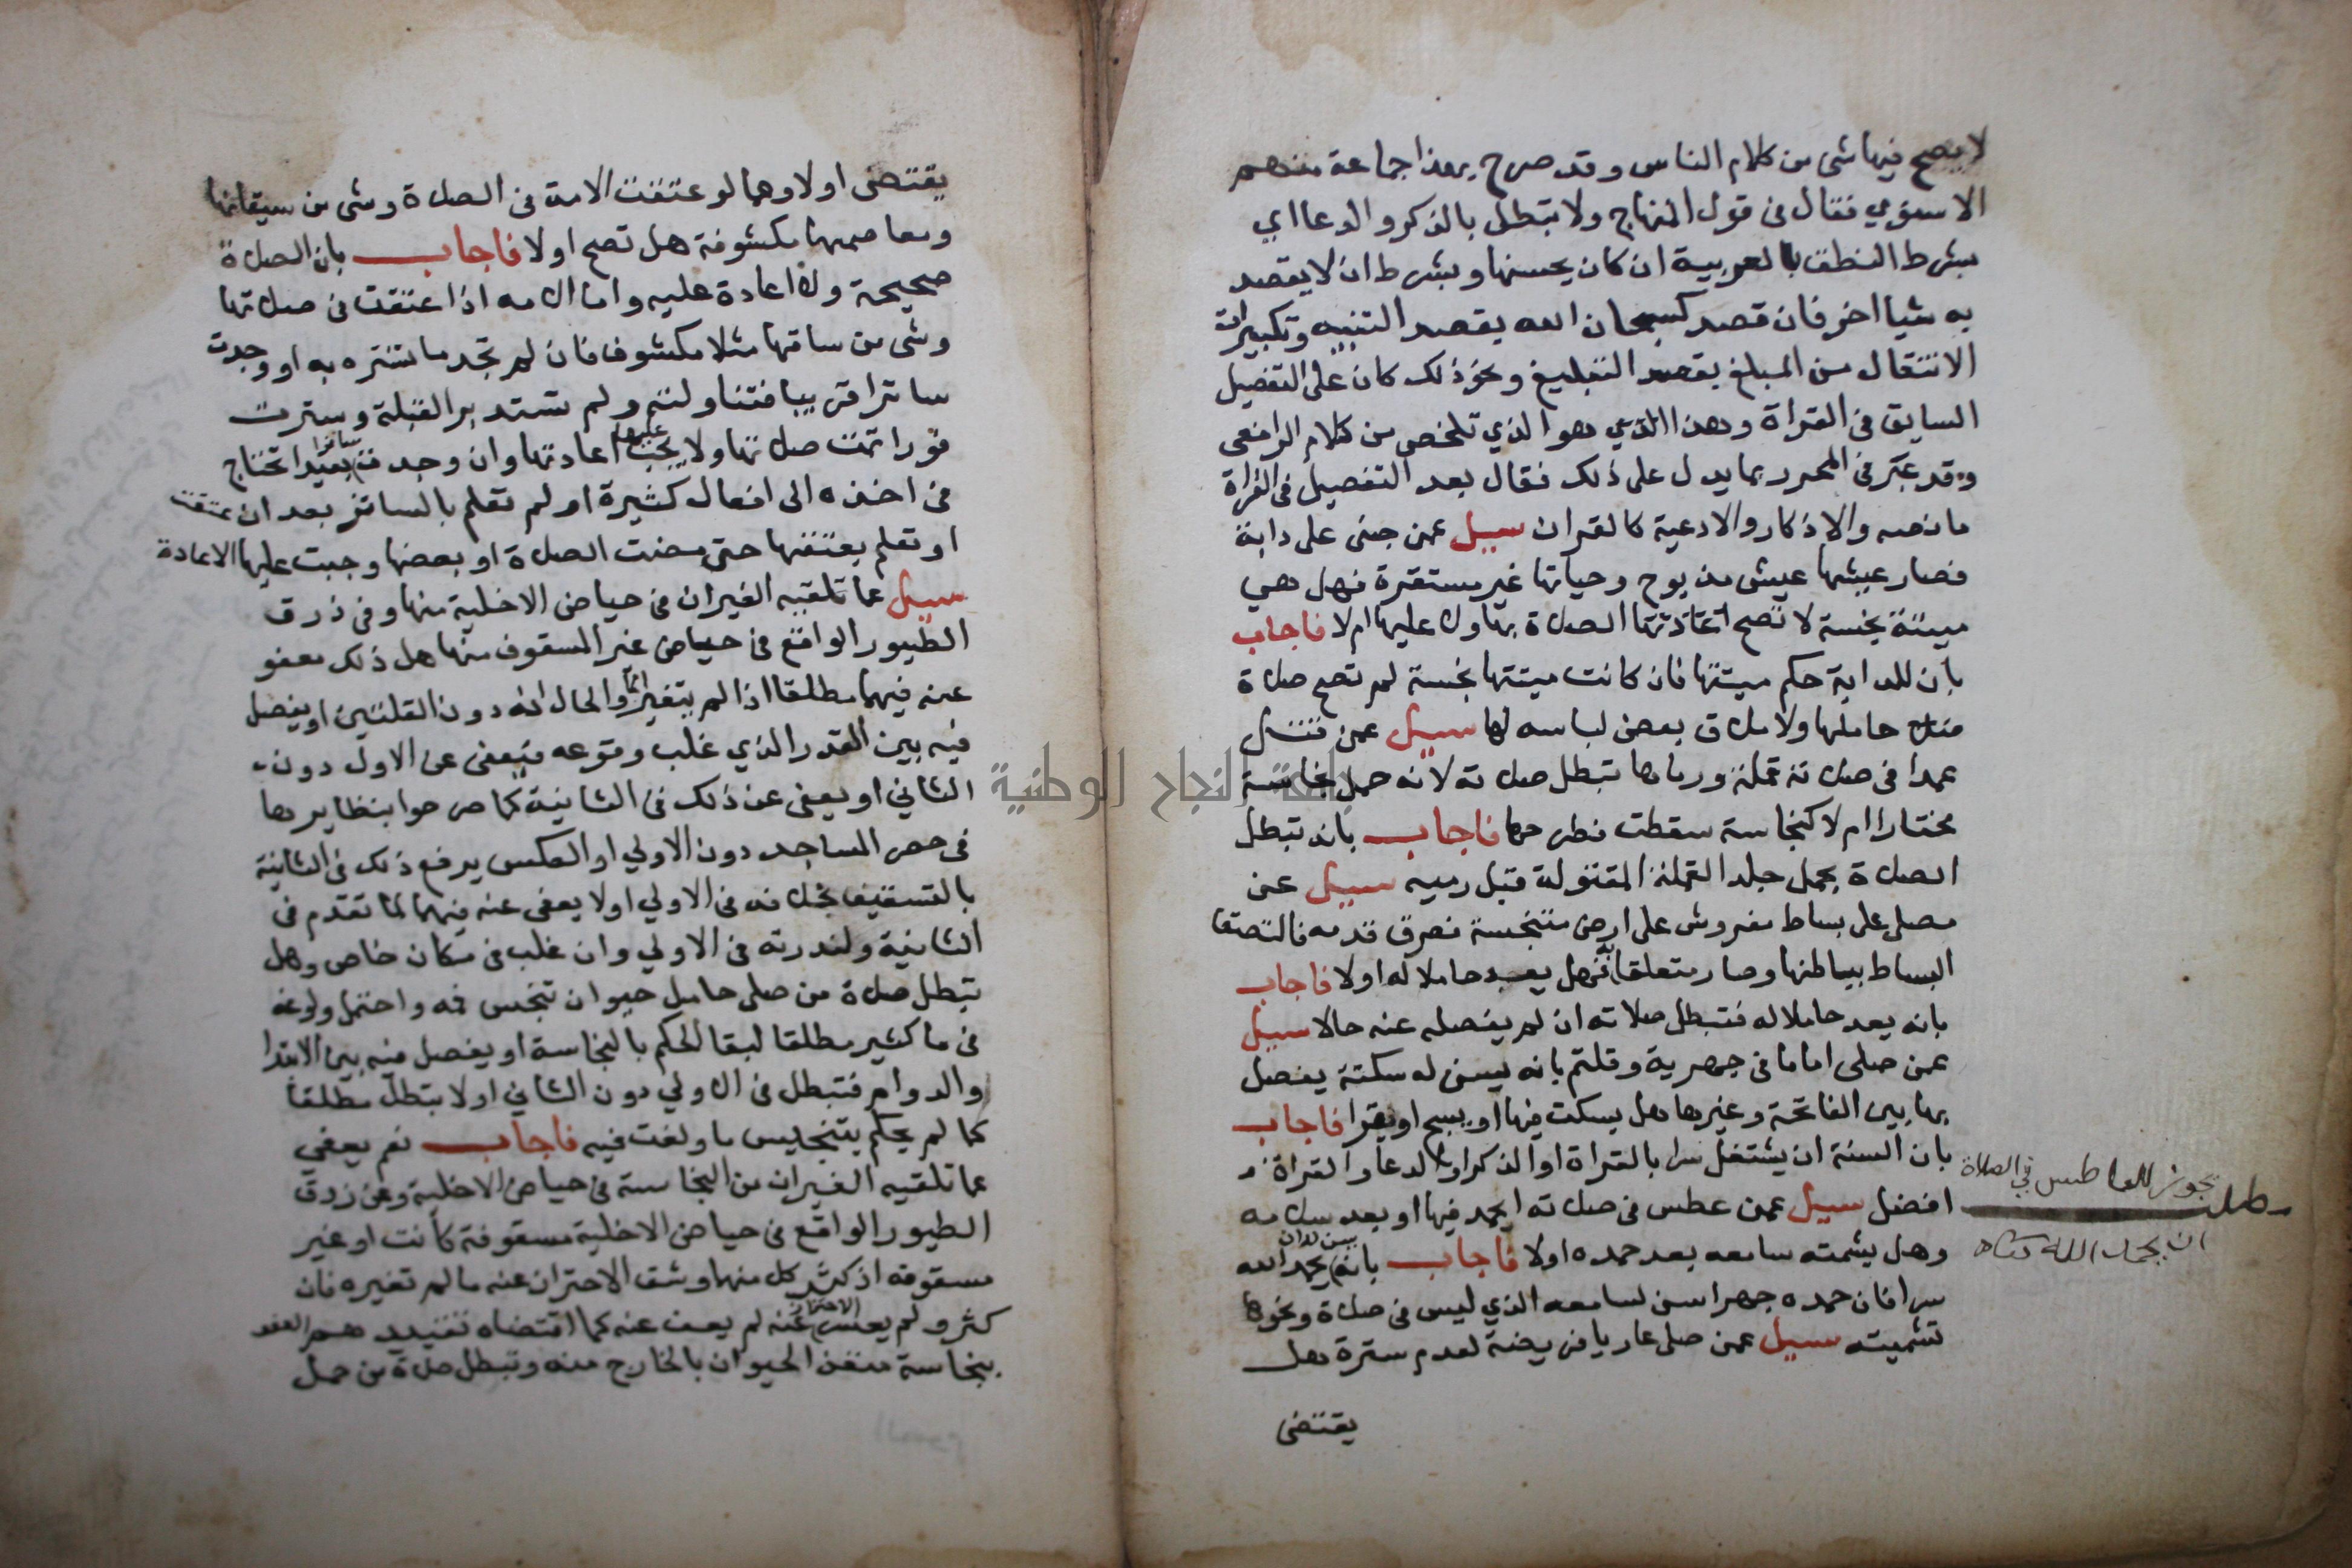 لا يصح فيها شي من كلام الناس وقد صرح بهذا جماعة منهم
الاسنوي فقال في قول المنهاج ولا تبطل بالذكر والدعا اي
بشرط النطق بالعربية ان كان يحسنها وبشرط ان لا يقصد
به شيا اخر فان قصد كسبحان الله يقصد التنبيه وتكبيرات
الانتقال من المبلغ بقصد التبليغ ونحو ذلك كان على التفصيل
السابق في القراة وهذا الذي هو الذي تلخص من كلام الرافعي
وقد عبر في المحرر بما يدل على ذلك فقال بعد التفصيل في القراة
ما نصه والاذكار والادعية كالقران سيل عمن جنى على دابة
فصار عيشها عيش مذبوح وحياتها غير مستقرة فهل هي
ميتة نجسة لا تصح الصلاة بها ولا عليها ام لا فاجاب
بان للدابة حكم ميتتها فان كانت ميتتها نجسة لم تصح صلاة
حاملها ولا ملاق بعض لباسه لها سيل عمن قتل
عمدا في صلاته قملة ورماها تبطل صلاته لانه حمل نجاسة
مختارا ام لا كنجاسة سقطت فطرحها فاجاب بانه تبطل
الصلاة بحمل جلد القملة المقتولة قبل رميه سيل عن
مصل على بساط مفروش على ارض متنجسة فعرق قدمه فالتصقا
البساط بباطنها وصار متعلقا به فهل يعد حاملا له اولا فاجاب
بانه يعد حاملا له فتبطل صلاته ان لم يفصله عنه حالا سيل
عمن صلى اماما في جهرية وقلتم بانه يسن له سكتة يفصل
بها بين الفاتحة وغيرها هل يسكت فيها او يسبح او يقرا فاجاب
بان السنة ان يشتغل سرا بالقراة او الذكر او الدعا والقراة
افضل سيل عمن عطس في صلاته ايحمد فيها او بعد سلامه
وهل يشمته سامعه بعد حمده اولا فاجاب بانه يسن له ان يحمد الله
سرا فان حمده جهرا سن لسامعه الذي ليس في صلاة ونحوها
تشميته سيل عمن صلى عاريا فريضة لعدم سترة هل
يقتضى
يجوز للعاطس في الصلاة
ان يحمد الله
يقتضى اولا وهما لو عتقت الامة في الصلاة وشي من سيقانها
ومعاصمها مكشوفة هل تصح اولا فاجاب بان الصلاة
صحيحة ولا اعادة عليه واما الامه اذا عتقت في صلاتها
وشي من ساقها مثلا مكشوف فان لم تجد ما تستتره به او وجدت
ساترا قريبا فتناولته ولم تستدبر القبلة وسترت
فورا تمت صلاتها ولا يجب عليها اعادتها وان وجدت ساترا بعيدا تحتاج
في اخذه الى افعال كثيرة او لم تعلم بالساتر بعد ان عتقت
او تعلم بعتقها حتى مضت الصلاة او بعضها وجبت عليها الاعادة
سيل عما تلقيه الفيران في حياض الاخلية منها وفي ذرق
الطيور الواقع في حياض غير المسقوف منها هل ذلك معفو
عنه فيهما مطلقا اذا لم يتغير الما والحال انه دون القلتين او يفصل
فيه بين القدر الذي غلب وقوعه فيعفى عن الاول دون
الثاني او يعفى عن ذلك في الثانية كما صرحوا بنظايرها
في حصر المساجد دون الاولي او العكس يرفع ذلك في الثانية
بالتسقيف بخلافه في الاولي اولا يعفى عنه فيهما لما تقدم في
الثانية ولندرته في الاولي وان غلب في مكان خاص وهل
تبطل صلاة من صلى حامل حيوان تنجس فمه واحتمل ولوغه
في ما كثير مطلقا لبقا الحكم بالنجاسة او يفصل فيه بين الابتدا
والدوام فتبطل في الاولي دون الثاني اولا تبطل مطلقا
كما لم يحكم بتنجيس ما ولغت فيه فاجاب نعم يعفى
عما تلقيه الفيران من النجاسة في حياض الاخلية وعن زرق
الطيور الواقع في حياض الاخلية مسقوفة كانت او غير
مسقوفة اذ كثر كل منها وشق الاحتراز عنه ما لم تغيره فان
كثر ولم يعسر الاحتراز عنه لم يعف عنه كما اقتضاه تقييدهم العفو
بنجاسة منفذ الحيوان بالخارج منه وتبطل صلاة من حمل
جامعة النجاح الوطنية